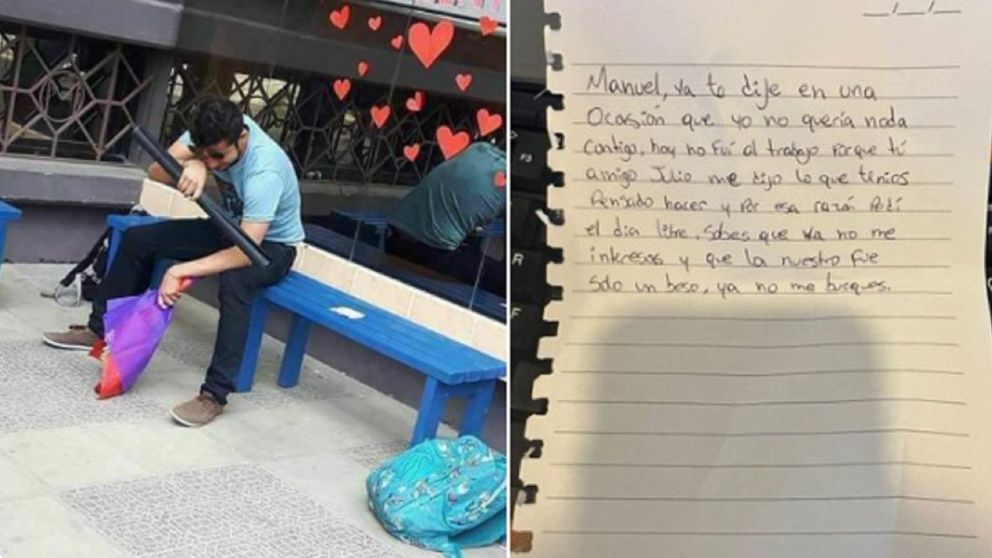 __/__/__
Manuel, ya te dije en una
Ocasión que yo no quería nada
Contigo, hoy no fuí al trabajo Porque tú
amigo Julio me dijo lo que tenías
Pensado hacer y Por esa razón Pedí
el día libre, Sabes que ya no me
interesas y que lo nuestro fue
Solo un beso, ya no me busques.
F3
R
F